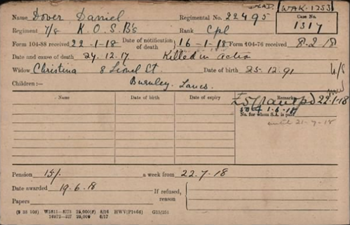 WAK-1753
Name Dover Daniel Regimental No. 22495 Case No.
Regiment 7/8 K.O.S.B's Rank Cpl 1317
Form 104-88 received 22-1-18 Date of notification of death 16-1-18 Form 104-76 received 8-2-18
Date and cause of death 24.12.17 Killed in action
Widow Christina 8 Lionel St Date of birth 25.12.91
Children:- Burnley Lancs.
Name Date of birth Date of expiration Remarks
22-1-18
No. for whom S.A. is paid
until 21-7-18
Pension 15/- a week from 22.7.18
Date awarded 19.6.18 If refused, reason
Papers